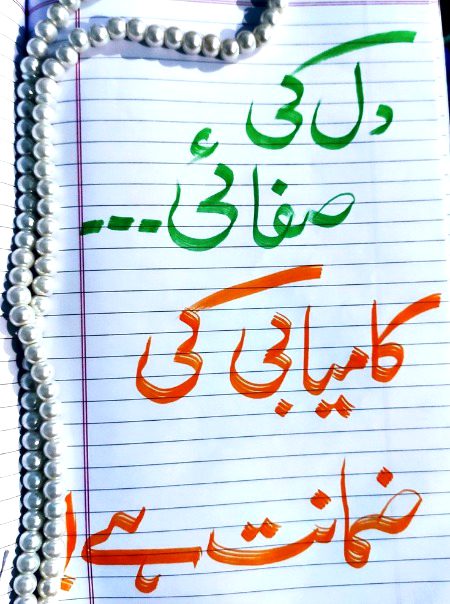 دل کی
صفائی...
کامیابی کی
ضمانت ہے!